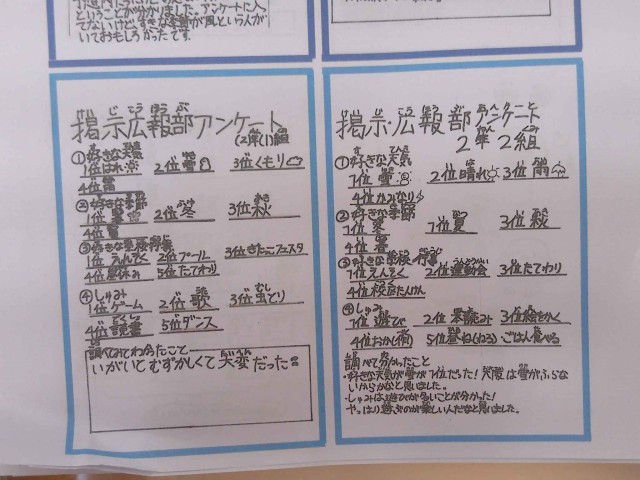 ということが分かりました。アンケートに入っ
いておもしろかったです。
掲示広報部アンケート
(2年(1)組
①好きな天気
1位はれ 2位雪 3位くもり
4位雷
②好きな季節
1位夏 2位冬 3位秋
4位春
1位えんそく 2位プール 3位きたこフェスタ
4位昼休み 5位たてわり
④しゅみ
1位ゲーム 2位歌 3位虫とり
4位読書 5位ダンス
調べてみてわかったこと
いがいとむずかしくて大変だった。
掲示・広報部アンケート
2年2組
①好きな天気
1位雪 2位晴れ 3位雨
4位かみなり
②好きな季節
1位冬 1位夏 3位秋
4位春
③好きな学校行事
1位えんそく 2位運動会 3位たてわり
4位校区たんけん
④しゅみ
1位遊び 2位本読み 3位絵をかく
4位おかし 5位昼ね(ねる) ごはん食べる
調べて分かったこと
・好きな天気が雪が1位だった!大阪は雪がふらな
いからかなと思いました。
・しゅみは遊びが多いことが分かった!
やっぱり遊ぶのが楽しい人だなと思いました。